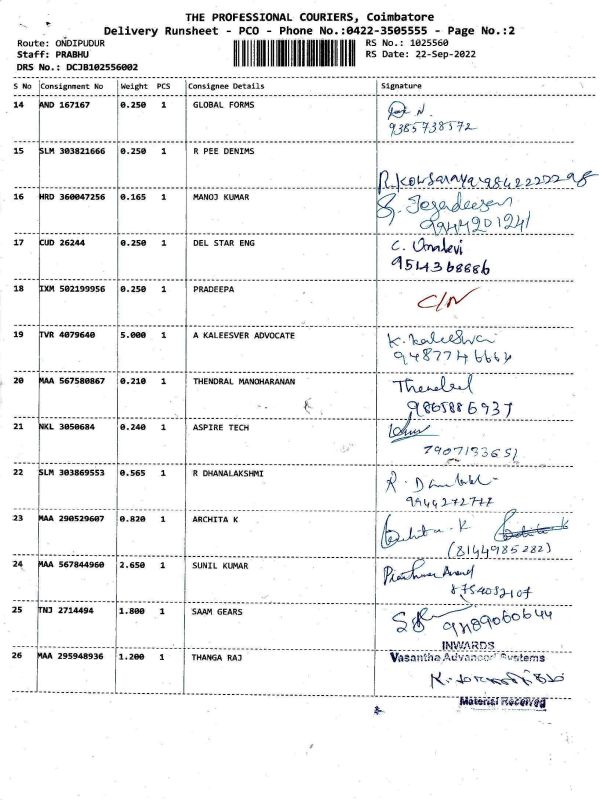 THE PROFESSIONAL COURIERS, Coimbatore
Delivery Runsheet - PCO - Phone No.:0422-3505555 - Page No.:2
Route: ONDIPUDUR RS No.: 1025560
Staff: PRABHU RS Date: 22-Sep-2022
DRS No.: DCJB102556002
S No Consignment No Weight PCS Consignee Details Signature
14 AND 167167 0.250 1 GLOBAL FORMS
9385738572
15 SLM 303821666 0.250 1 R PEE DENIMS
R. Kowsaraya
16 HRD 360047256 0.165 1 MANOJ KUMAR
9944201241
17 CUD 26244 0.250 1 DEL STAR ENG C. Umadevi
9514368686
18 IXM 502199956 0.250 1 PRADEEPA
C/N
19 TVR 4079640 5.000 1 A KALEESVER ADVOCATE
9487746664
20 MAA 567580867 0.210 1 THENDRAL MANOHARANAN
9865886937
21 NKL 3050684 0.240 1 ASPIRE TECH
7907133651
22 SLM 303869553 0.565 1 R DHANALAKSHMI
9944272777
23 MAA 290529607 0.820 1 ARCHITA K
(8144985282)
24 MAA 567844960 2.650 1 SUNIL KUMAR
8754052107
25 TNJ 2714494 1.800 1 SAAM GEARS
INWARDS
26 MAA 295948936 1.200 1 THANGA RAJ Vasantha Advanced Systems
Material Received